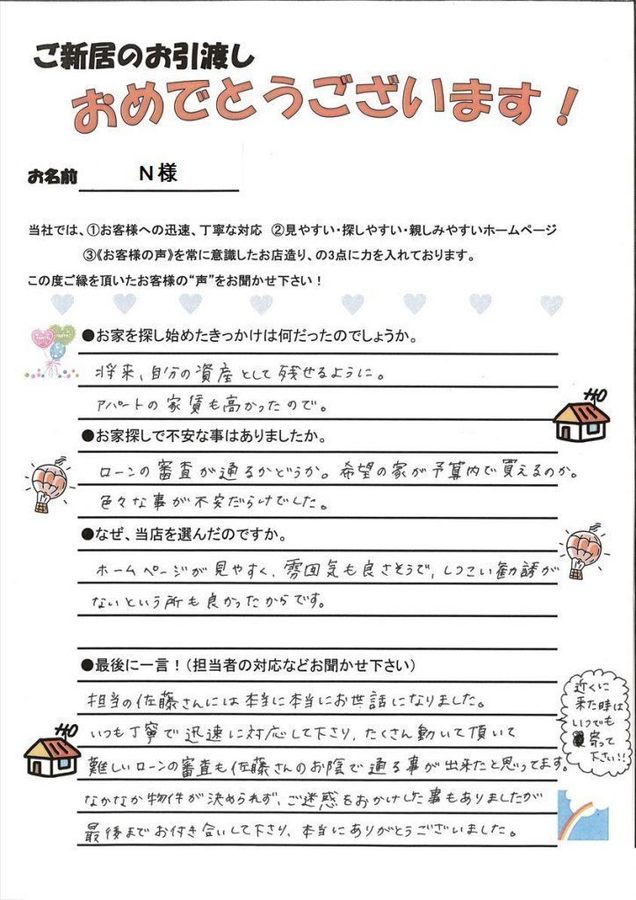 ご新居のお引渡し
おめでとうございます！
お名前 N様
当社では、①お客様への迅速、丁寧な対応 ②見やすい・探しやすい・親しみやすいホームページ
③《お客様の声》を常に意識したお店造り、の3点に力を入れております。
この度ご縁を頂いたお客様の“声”をお聞かせ下さい！
●お家を探し始めたきっかけは何だったのでしょうか。
将来、自分の資産として残せるように。
アパートの家賃も高かったので。
●お家探しで不安な事はありましたか。
ローンの審査が通るかどうか。希望の家が予算内で買えるのか。
色々な事が不安だらけでした。
●なぜ、当店を選んだのですか。
ホームページが見やすく、雰囲気も良さそうで、しつこい勧誘が
ないという所も良かったからです。
●最後に一言！（担当者の対応などお聞かせ下さい）
担当の佐藤さんには本当に本当にお世話になりました。
いつも丁寧で迅速に対応して下さり、たくさん動いて頂いて
難しいローンの審査も佐藤さんのお陰で通る事が出来たと思ってます。
なかなか物件が決められず、ご迷惑をおかけした事もありましたが
最後までお付き合いして下さり、本当にありがとうございました。
近くに
来た時は
いつでも
寄って
下さい!!